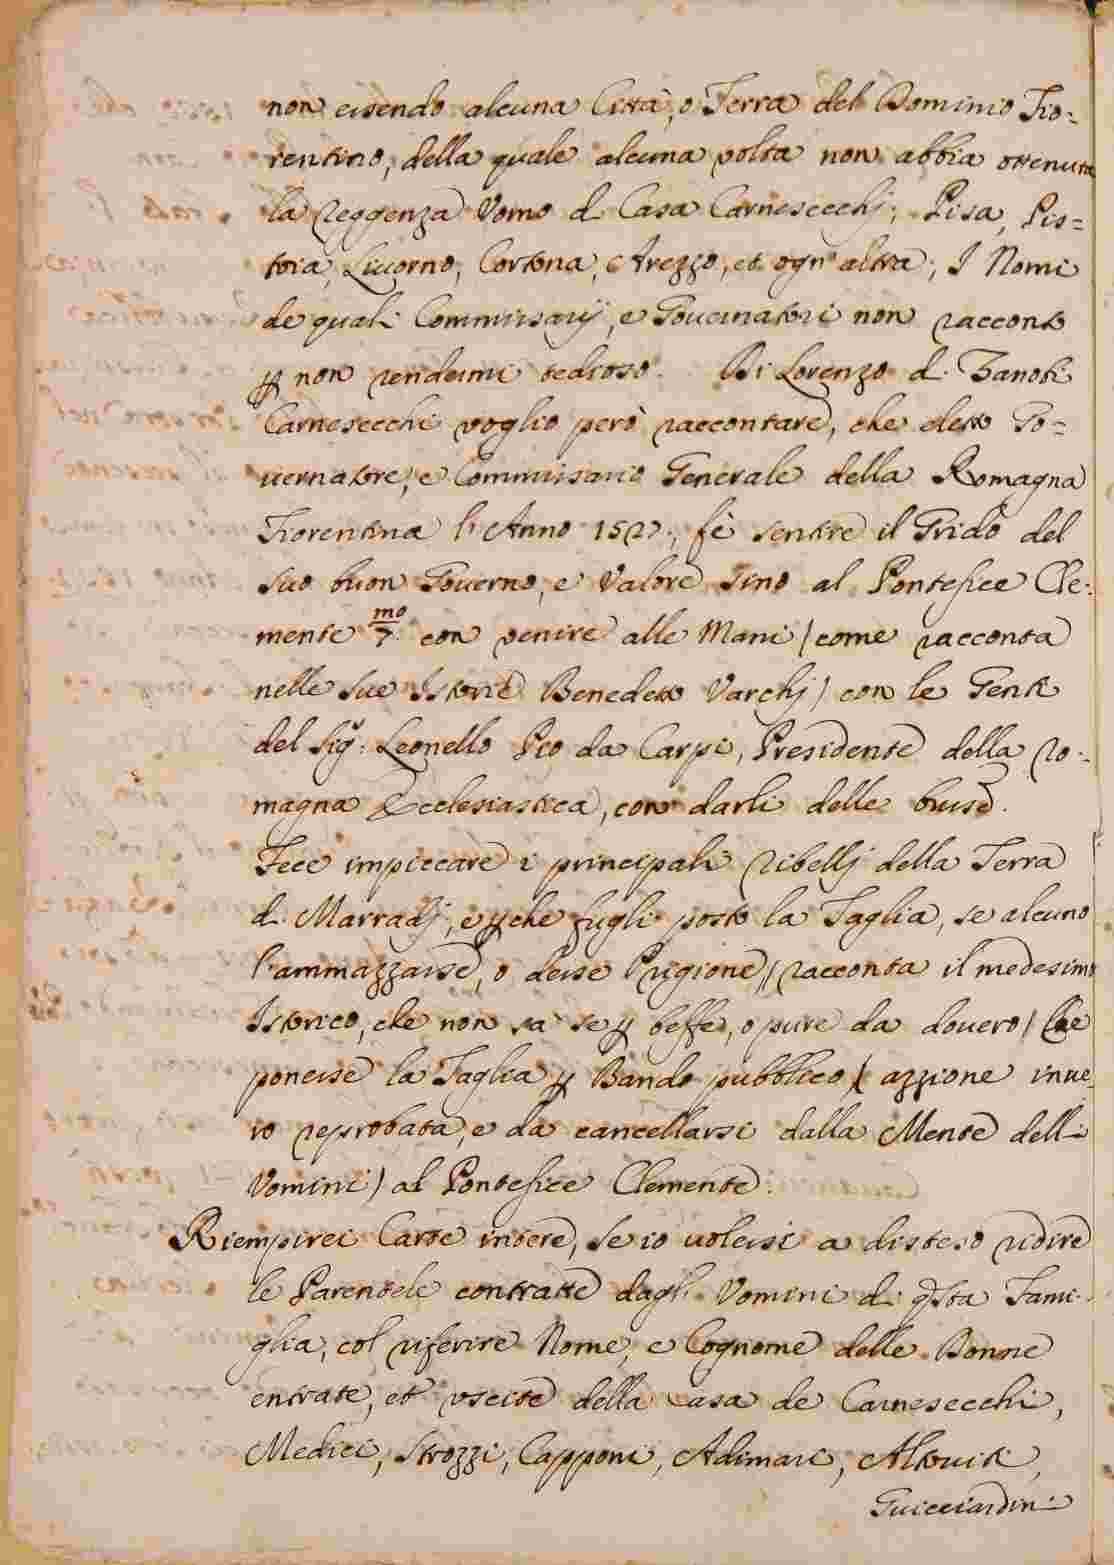 non essendo alcuna Città, o Terra del Dominio Fio=
rentino, della quale alcuna volta non abbia ottenuta
la reggenza Vomo di Casa Carnesecchj; Pisa, Pis=
toia, Liuorno, Cortona, Arezzo, et ogn'altra; I Nomi
de quali Commissarij, e Gouernatori non racconto
p non rendermi tedioso. Di Lorenzo di Zanobi
Carnesecchi voglio però raccontare, che eletto Go=
uernatore, e Commissario Generale della Romagna
Fiorentina l'Anno 1527., fè sentire il Grido del
suo buon Gouerno, e Valore sino al Pontefice Cle=
mente 7.mo con venire alle Mani (come racconta
nelle sue Istorie Benedetto Varchj) con le Genti
del Sigr: Leonello Pio da Carpi, Presidente della Ro-
magna Ecclesiastica, con darli delle busse.
Fece impiccare i principali ribellj della Terra
di Marradj, e pche fugli posto la Taglia, se alcuno
l'ammazzasse, o desse Prigione, (racconta il medesimo
Istorico, che non sa se p beffe, o pure da douero) Che
ponesse la Taglia p Bando pubblico (azzione inue=
ro reprobata, e da cancellarsi dalla Mente delli
Vomini) al Pontefice Clemente.
Riempirei Carte intere, se io uolessi a disteso ridire
le Parentele contratte dagli Vomini di qsta Fami-
glia, col riferire Nome, e Cognome delle Donne
entrate, et vscite della Casa de Carnesecchi,
Medici, Strozzi, Capponi, Adimari, Altouiti,
Guicciardini